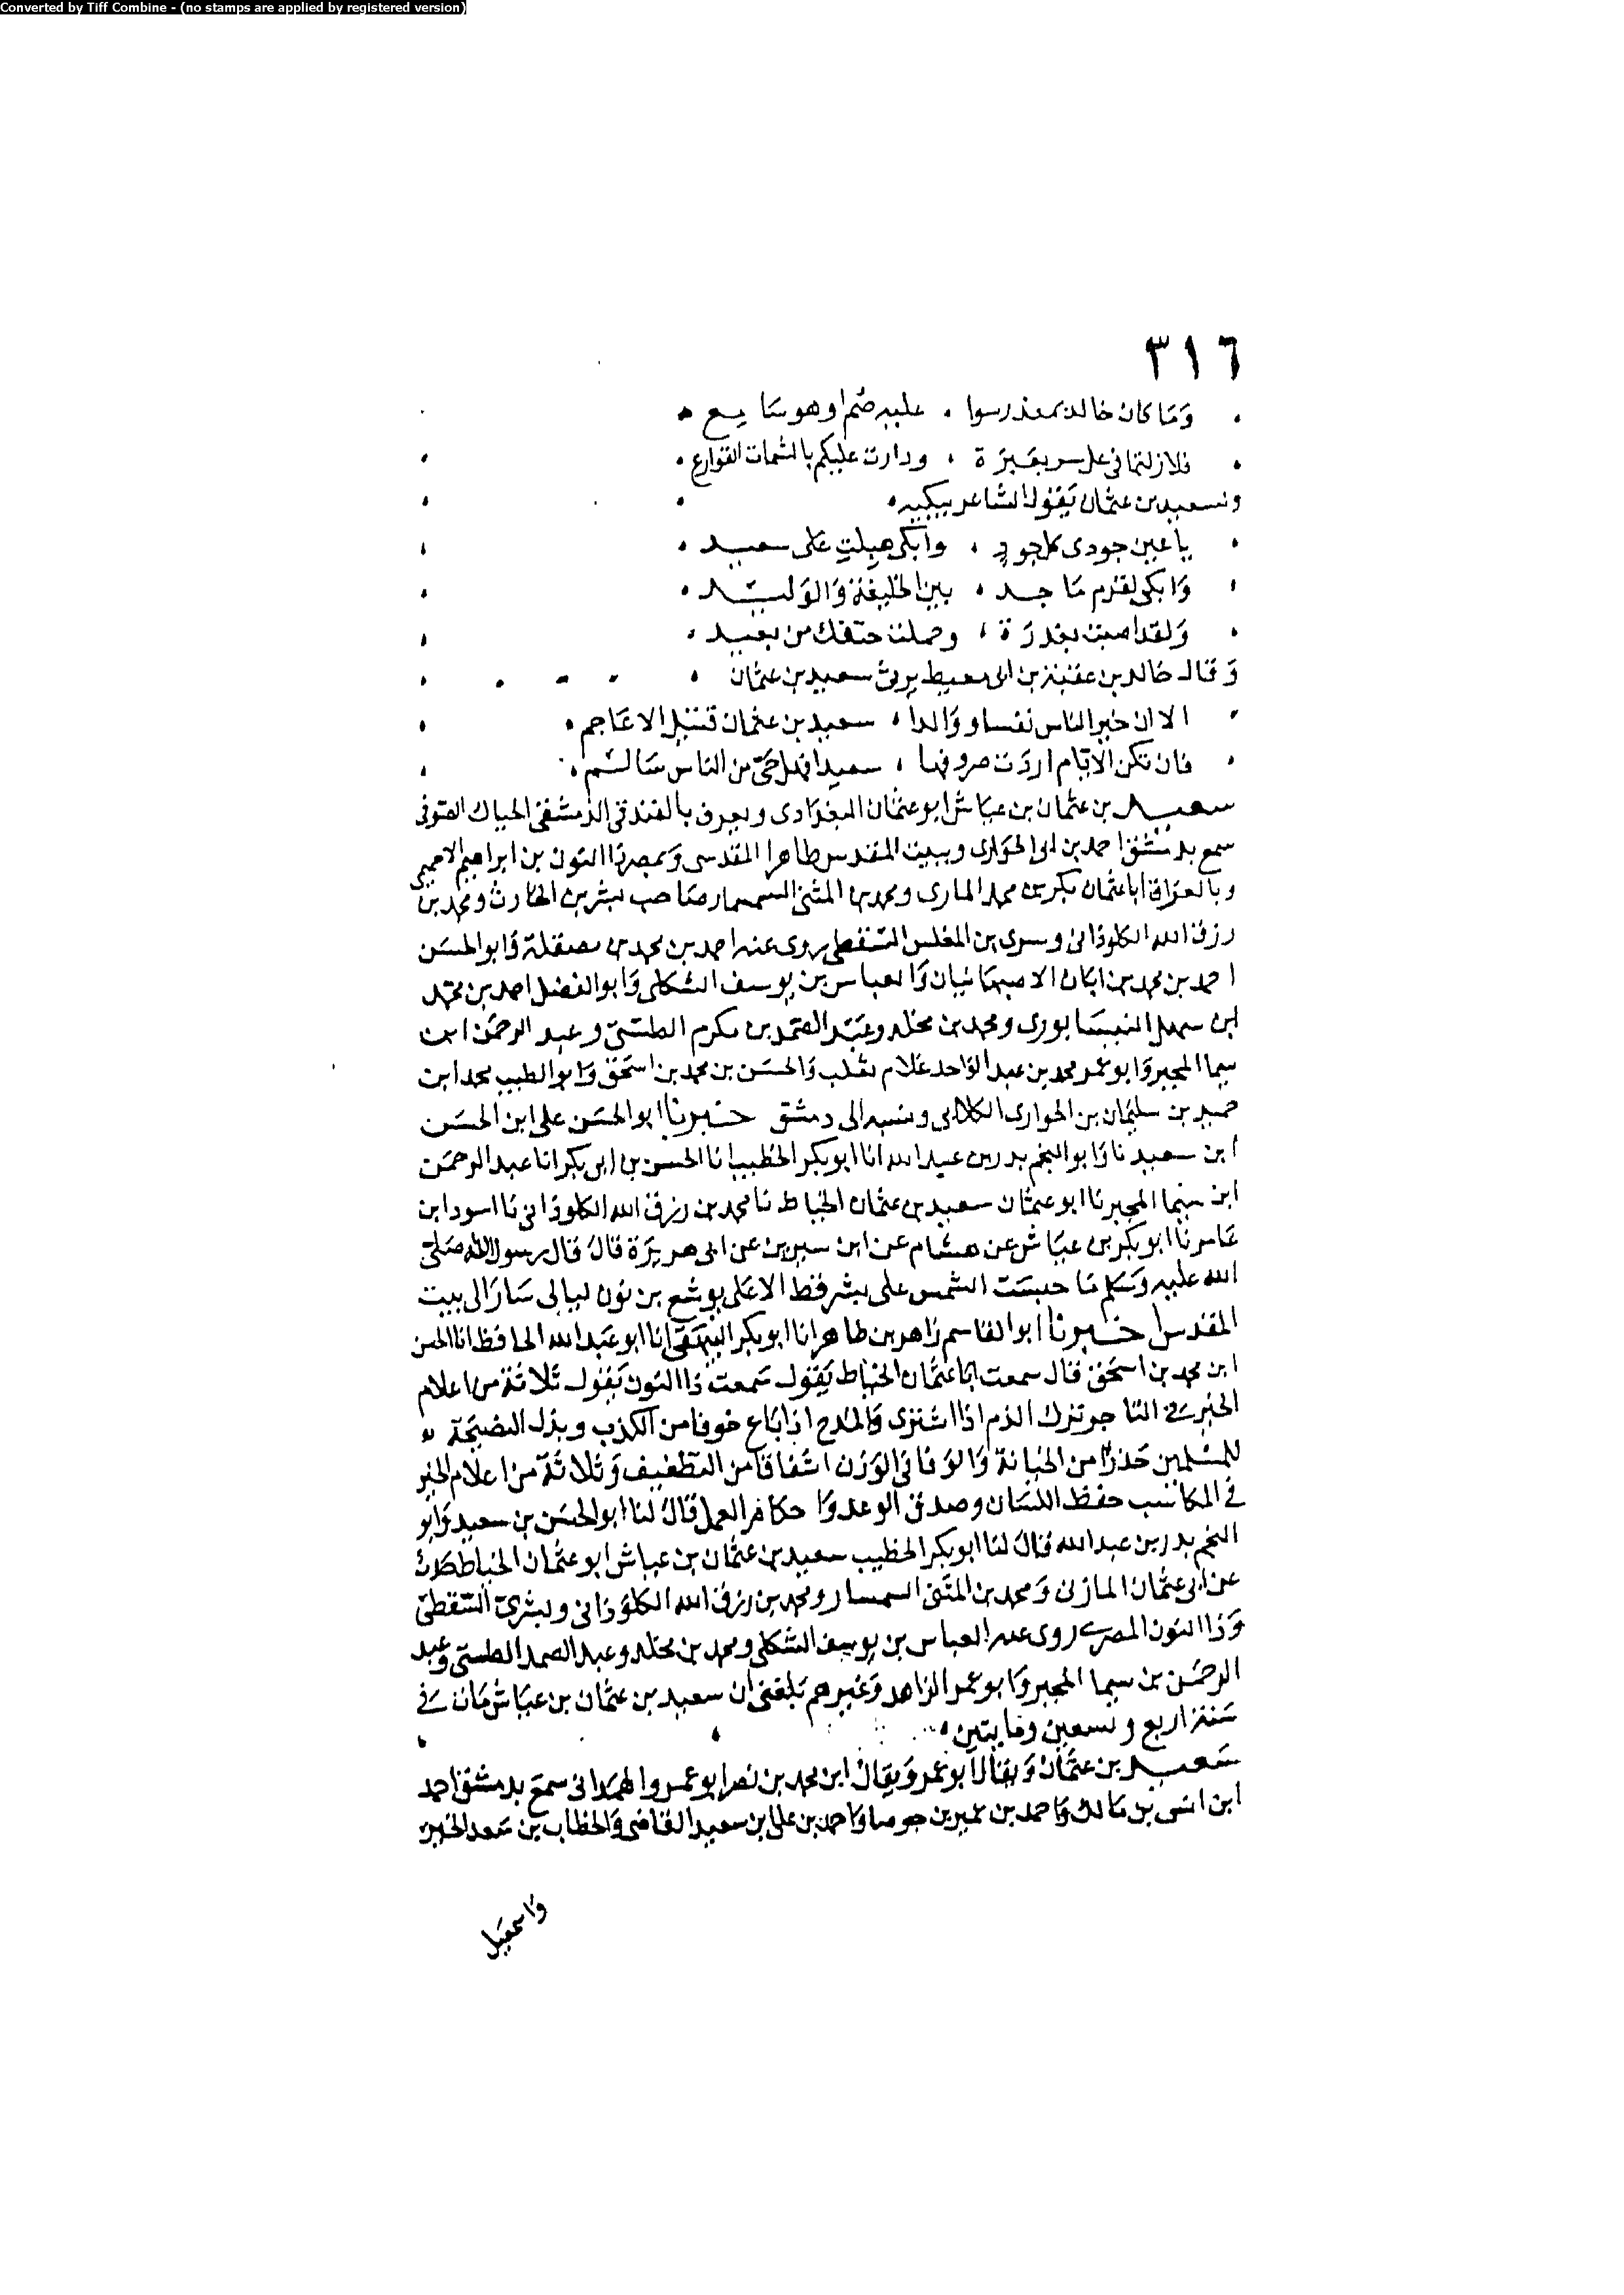 Converted by Tiff Combine - (no stamps are applied by registered version)
٣١٦
وما كان خالد بمعذر سوا عليه صم او هو سامع
فلازلتما في غل سر بعبرة ودارت عليكم بالشمات القوارع
ولسعيد بن عثمان يقول الشاعر يبكيه
يا عين جودي كل جود وابكي هبلت على سعيد
وابكي لقرم ماجد بين الخليفة والوليد
ولقد اصبت بغدرة وحملت حتفك من بعيد
وقال خالد بن عقبة بن ابي معيط يرثي سعيد بن عثمان
الا ان خير الناس نفسا ووالدا سعيد بن عثمان قتيل الاعاجم
فان تكن الايام اردت صروفها سعيدا فهل حي من الناس سالم
سعيد بن عثمان بن عياش ابو عثمان البغدادي ويعرف بالفندقي الدمشقي الصوفي
سمع بدمشق احمد بن ابي الحواري وببيت المقدس طاهرا المقدسي وبمصر ذا النون بن ابراهيم الاخميمي
وبالعراق ابا عثمان بكر بن محمد المازني ومحمد بن المثنى السمسار صاحب بشر بن الحارث ومحمد بن
رزق الله الكلوذاني وسري بن المغلس السقطي روى عنه احمد بن محمد بن مصقلة وابو الحسن
احمد بن محمد بن ابان الاصبهانيان والعباس بن يوسف الشكلي وابو الفضل احمد بن محمد
ابن سهل النيسابوري ومحمد بن مخلد وعبد الصمد بن مكرم الطستي وعبد الرحمن ابن
سيما المجبر وابو عمر محمد بن عبد الواحد غلام ثعلب والحسن بن محمد بن اسحق وابو الطيب محمد ابن
حميد بن سليمان بن الحواري الكلابي ونسبه الى دمشق خبرنا ابو الحسن علي ابن الحسن
ابن سعيد نا وابو النجم بدر بن عبد الله انا ابو بكر الخطيب انا الحسن بن ابي بكر انا عبد الرحمن
ابن سيما المجبر نا ابو عثمان سعيد بن عثمان الخياط نا محمد بن رزق الله الكلوذاني نا اسود ابن
عامر نا ابو بكر بن عياش عن هشام عن ابن سيرين عن ابي هريرة قال قال رسول الله صلى
الله عليه وسلم ما حبست الشمس على بشر قط الا على يوشع بن نون ليالي سار الى بيت
المقدس خبرنا ابو القاسم زاهر بن طاهر انا ابو بكر البيهقي انا ابو عبد الله الحافظ انا الحسن
ابن محمد بن اسحق قال سمعت ابا عثمان الخياط يقول سمعت ذا النون يقول ثلاثة من اعلام
الخير في التاجر ترك الذم اذا اشترى والمدح اذا باع خوفا من الكذب وبذل النصيحة
للمسلمين حذرا من الخيانة والوفا في الوزن اشفاقا من التطفيف وثلاثة من اعلام الخير
في المكاسب حفظ اللسان وصدق الوعد واحكام العمل قال لنا ابو الحسن بن سعيد وابو
النجم بدر بن عبد الله قال لنا ابو بكر الخطيب سعيد بن عثمان بن عياش ابو عثمان الخياط حدث
عن ابي عثمان المازني ومحمد بن المثنى السمسار ومحمد بن رزق الله الكلوذاني وبشري السقطي
وذا النون المصري روى عنه العباس بن يوسف الشكلي ومحمد بن مخلد وعبد الصمد الطستي وعبد
الرحمن بن سيما المجبر وابو عمر الزاهد وغيرهم بلغني ان سعيد بن عثمان بن عياش مات في
سنة اربع وتسعين ومايتين
سعيد بن عثمان ويقال ابو عمر ويقال ابن محمد بن نصر ابو عمرو الهمداني سمع بدمشق احمد
ابن انس بن مالك واحمد بن عمير بن جوصا واحمد بن علي بن سعيد القاضي والخطاب بن سعد الخير
واسمعيل